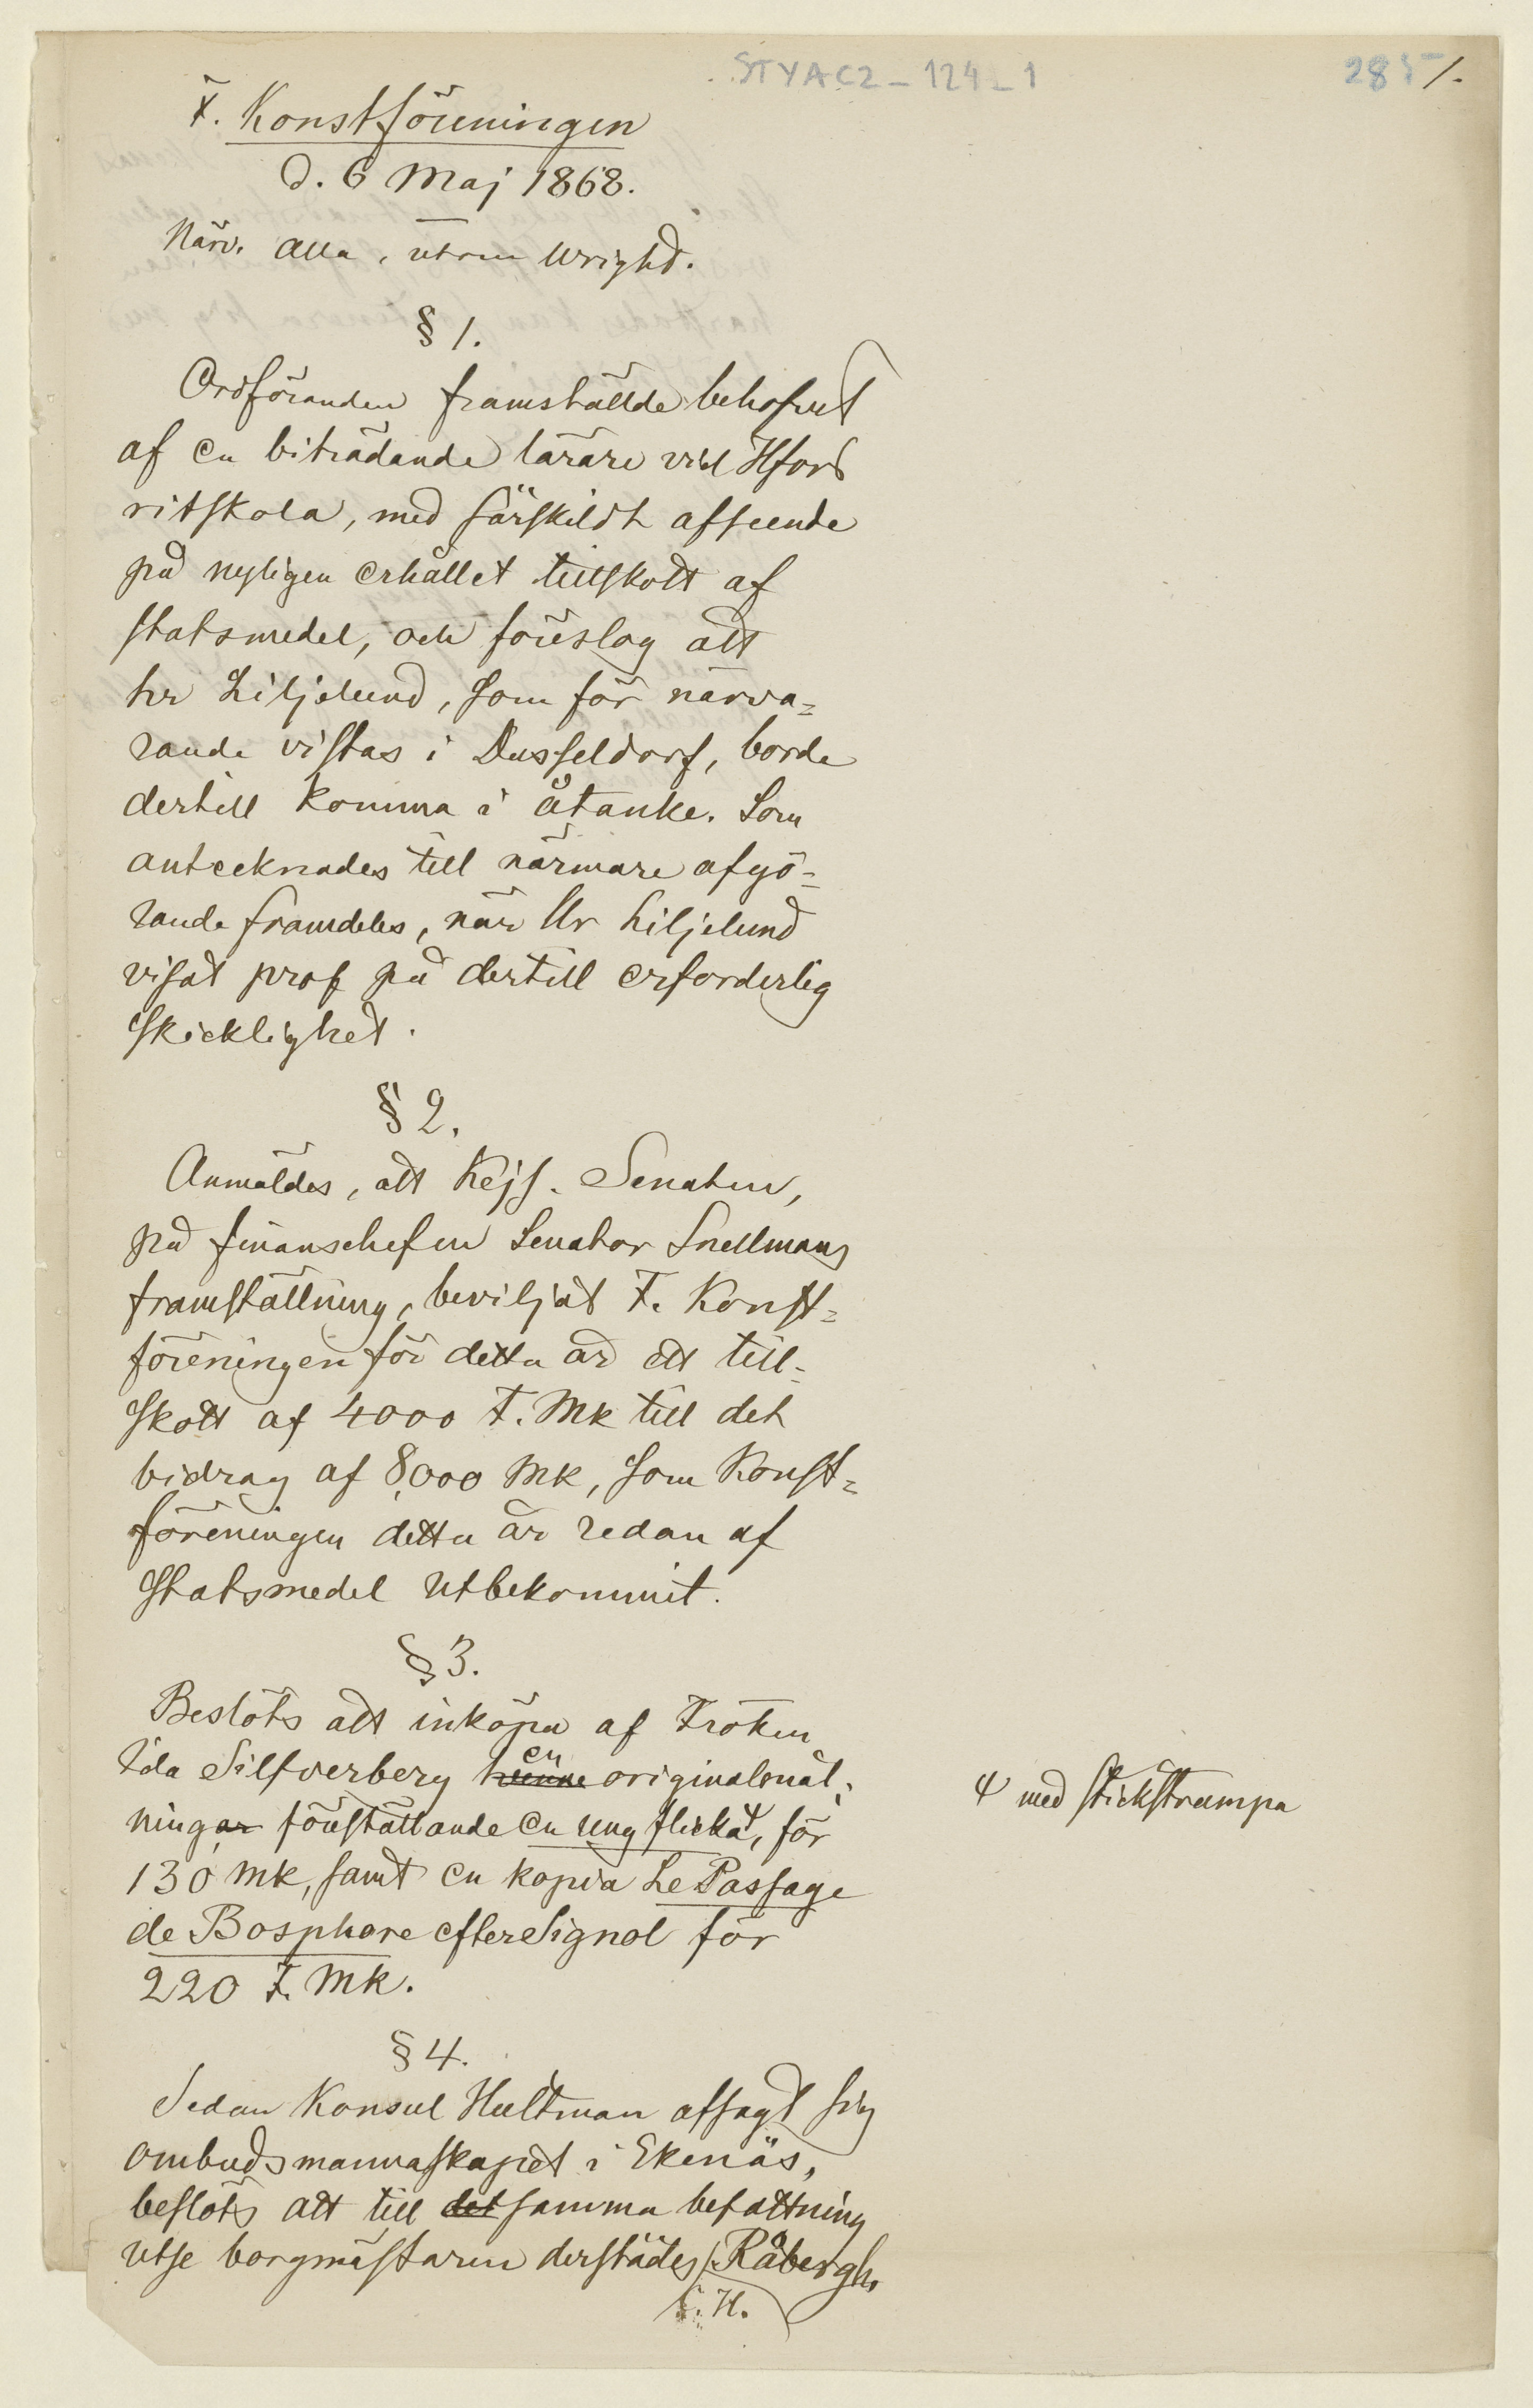 STYAC2-124-1
285 1.
F. Konstföreningen
d. 6 Maj 1868.
Närv. alla, utom Wright.
§ 1.
Ordföranden framställde behofvet
af en biträdande lärare vid Hfors
ritskola, med särskildt afseende
på nyligen erhållet tillskott af
statsmedel, och föreslog att
hr Liljelund, som för närva=
rande vistas i Dusseldorf, borde
dertill komma i åtanke. Som
antecknades till närmare afgö=
rande framdeles, när Hr Liljelund
visat prof på dertill erforderlig
skicklighet.
§ 2.
Anmäldes, att Kejs. Senaten,
på finanschefen Senator Snellmans
framställning, beviljat F. Konst=
föreningen för detta år ett till=
skott af 4000 F. Mk till det
bidrag af 8,000 Mk, som Konst=
föreningen detta år redan af
Statsmedel utbekommit.
§ 3.
Beslöts att inköpa af Fröken
Ida Silfverberg henne en originalmål=
ningar föreställande en ung flicka, för
med stickstrumpa
130 Mk, samt en kopia Le Passage
de Bosphore efter Signol för
220 F. Mk.
§ 4.
Sedan Konsul Hultman afsagt sig
ombudsmannaskapet i Ekenäs,
beslöts att till det samma befattning
utse borgmästaren derstädes Råbergh.
C. H.